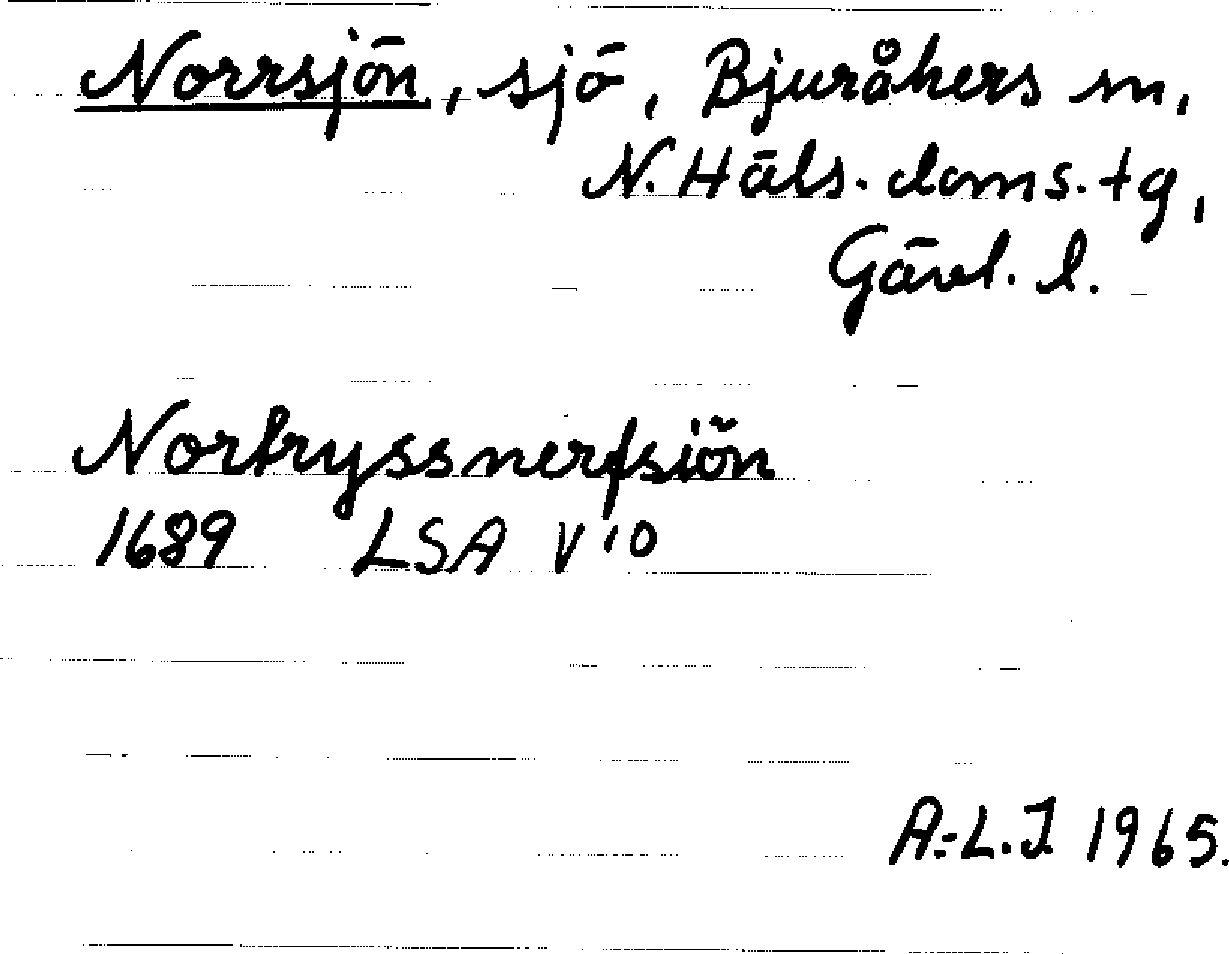 Norrsjön, sjö, Bjuråkers sn,
N. Häls. doms. tg,
Gävl. l.
Nortryssnerfsiön
1689 LSA V 10
A.-L.J. 1965.